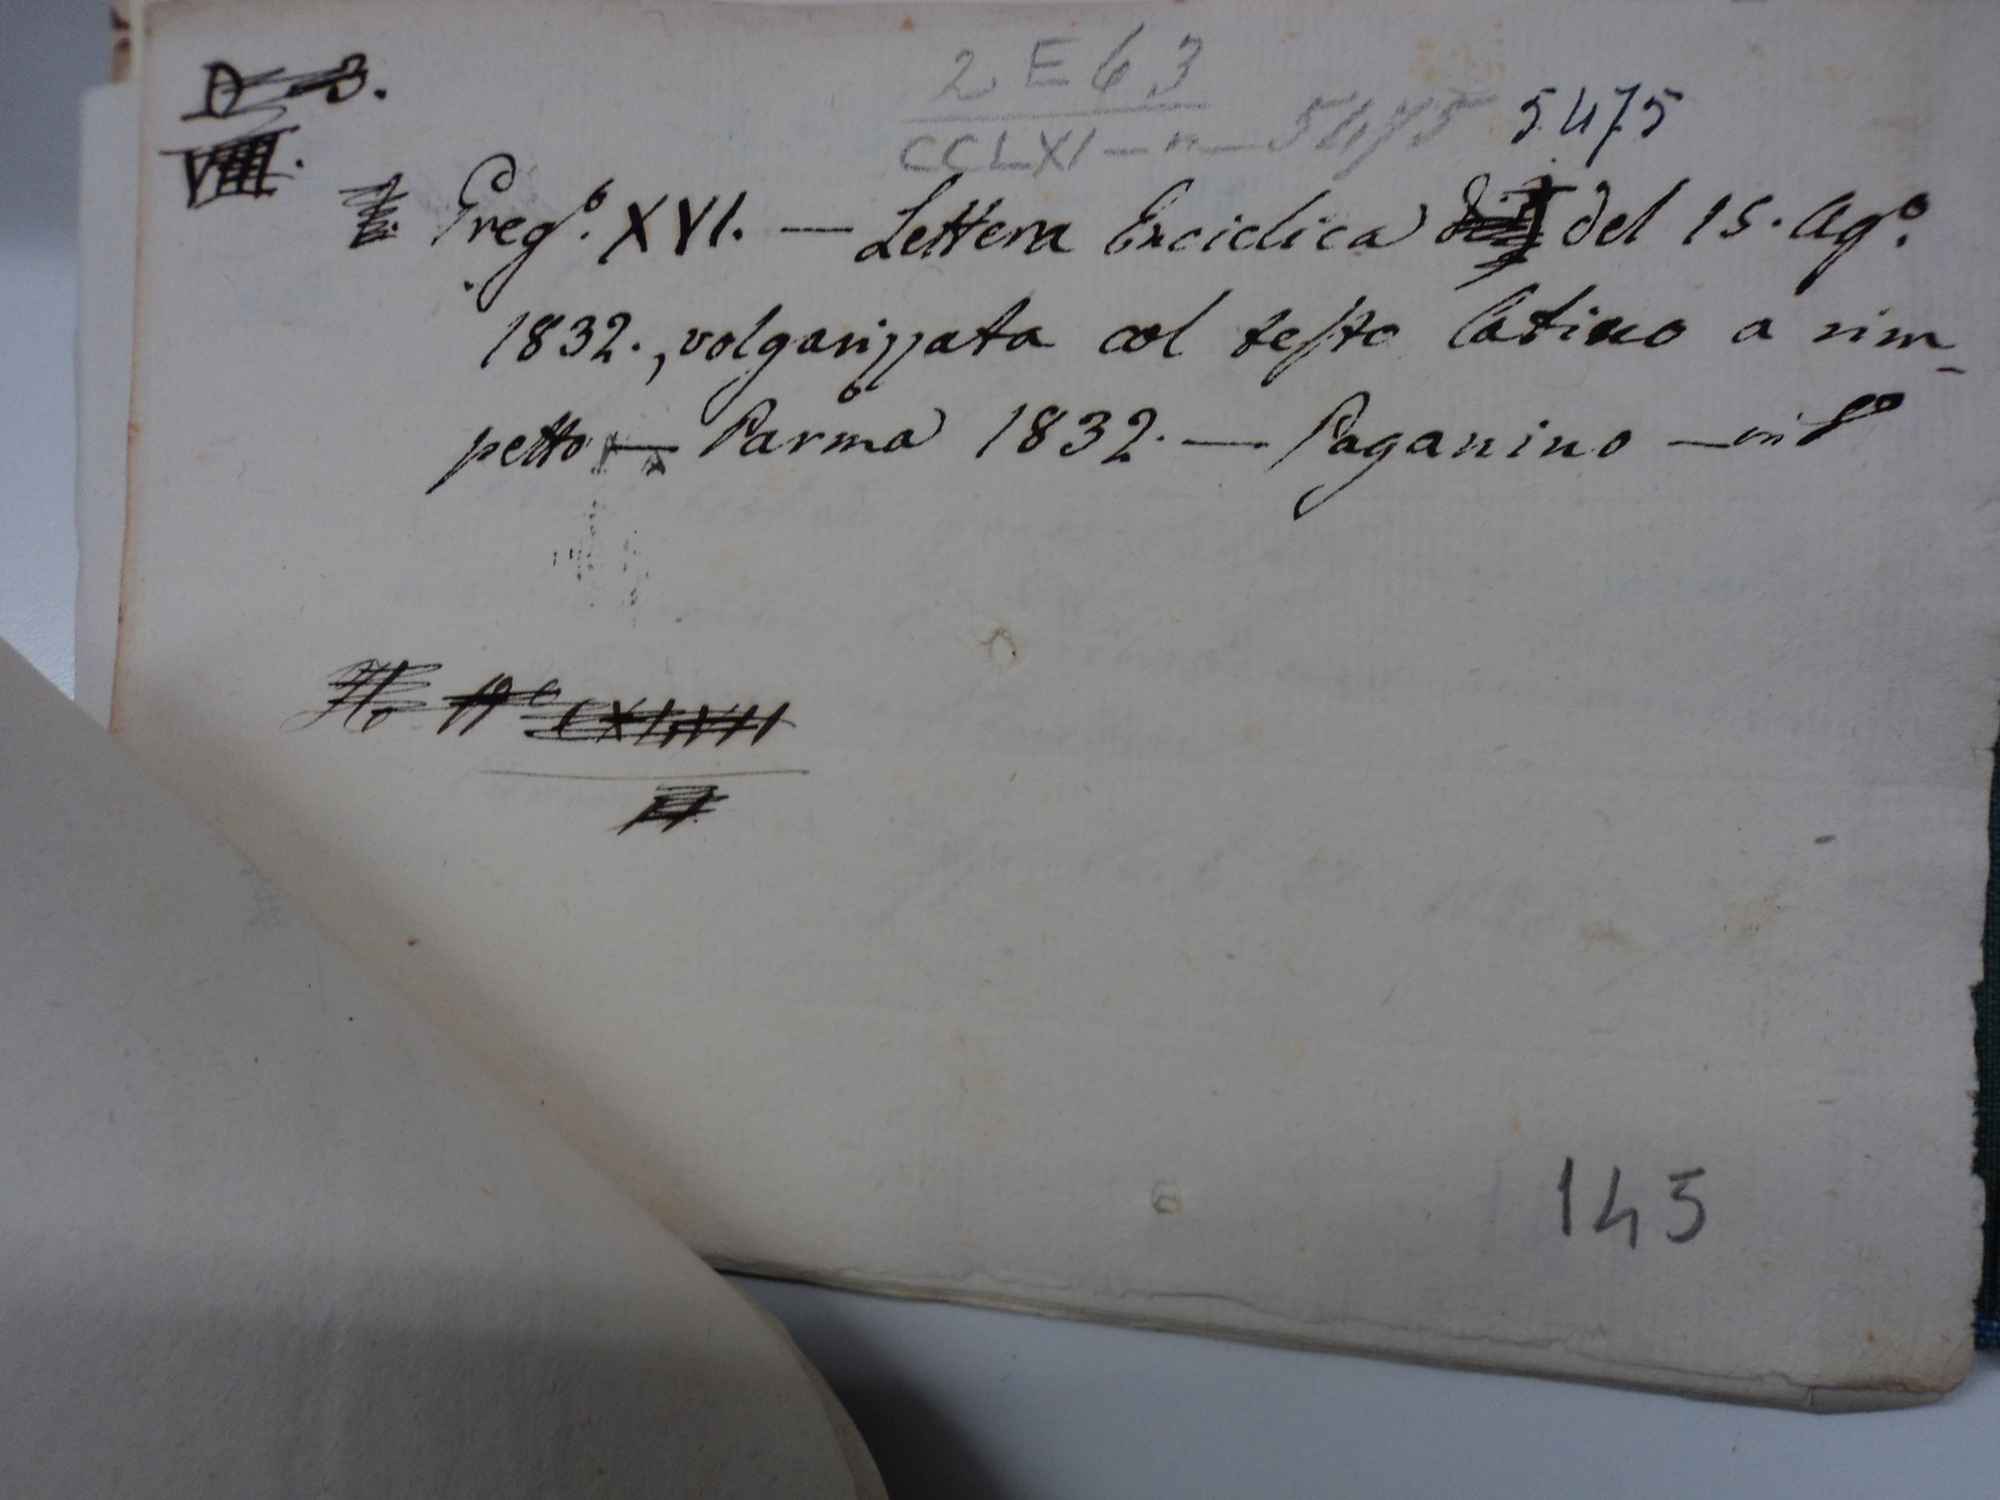 D-3.
2 E 63
CCLXI - n - 5475 5475
VIII.
Greg.º XVI. — Lettera Enciclica del 15. Ag.º
1832., volgarizzata col testo latino a rim-
petto — Parma 1832. — Paganino — in 8º
145